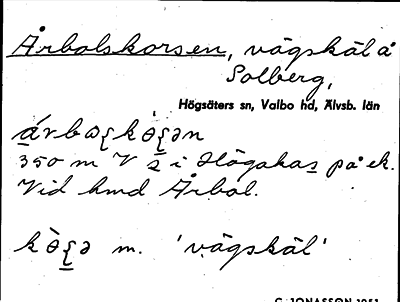 Årbolskorsen, vägskäl å
Solberg,
Högsäters sn, Valbo hd, Älvsb. län
350 m V i på ek.
Vid hmd Årbol.
m. 'vägskäl'
C. JONASSON 1951